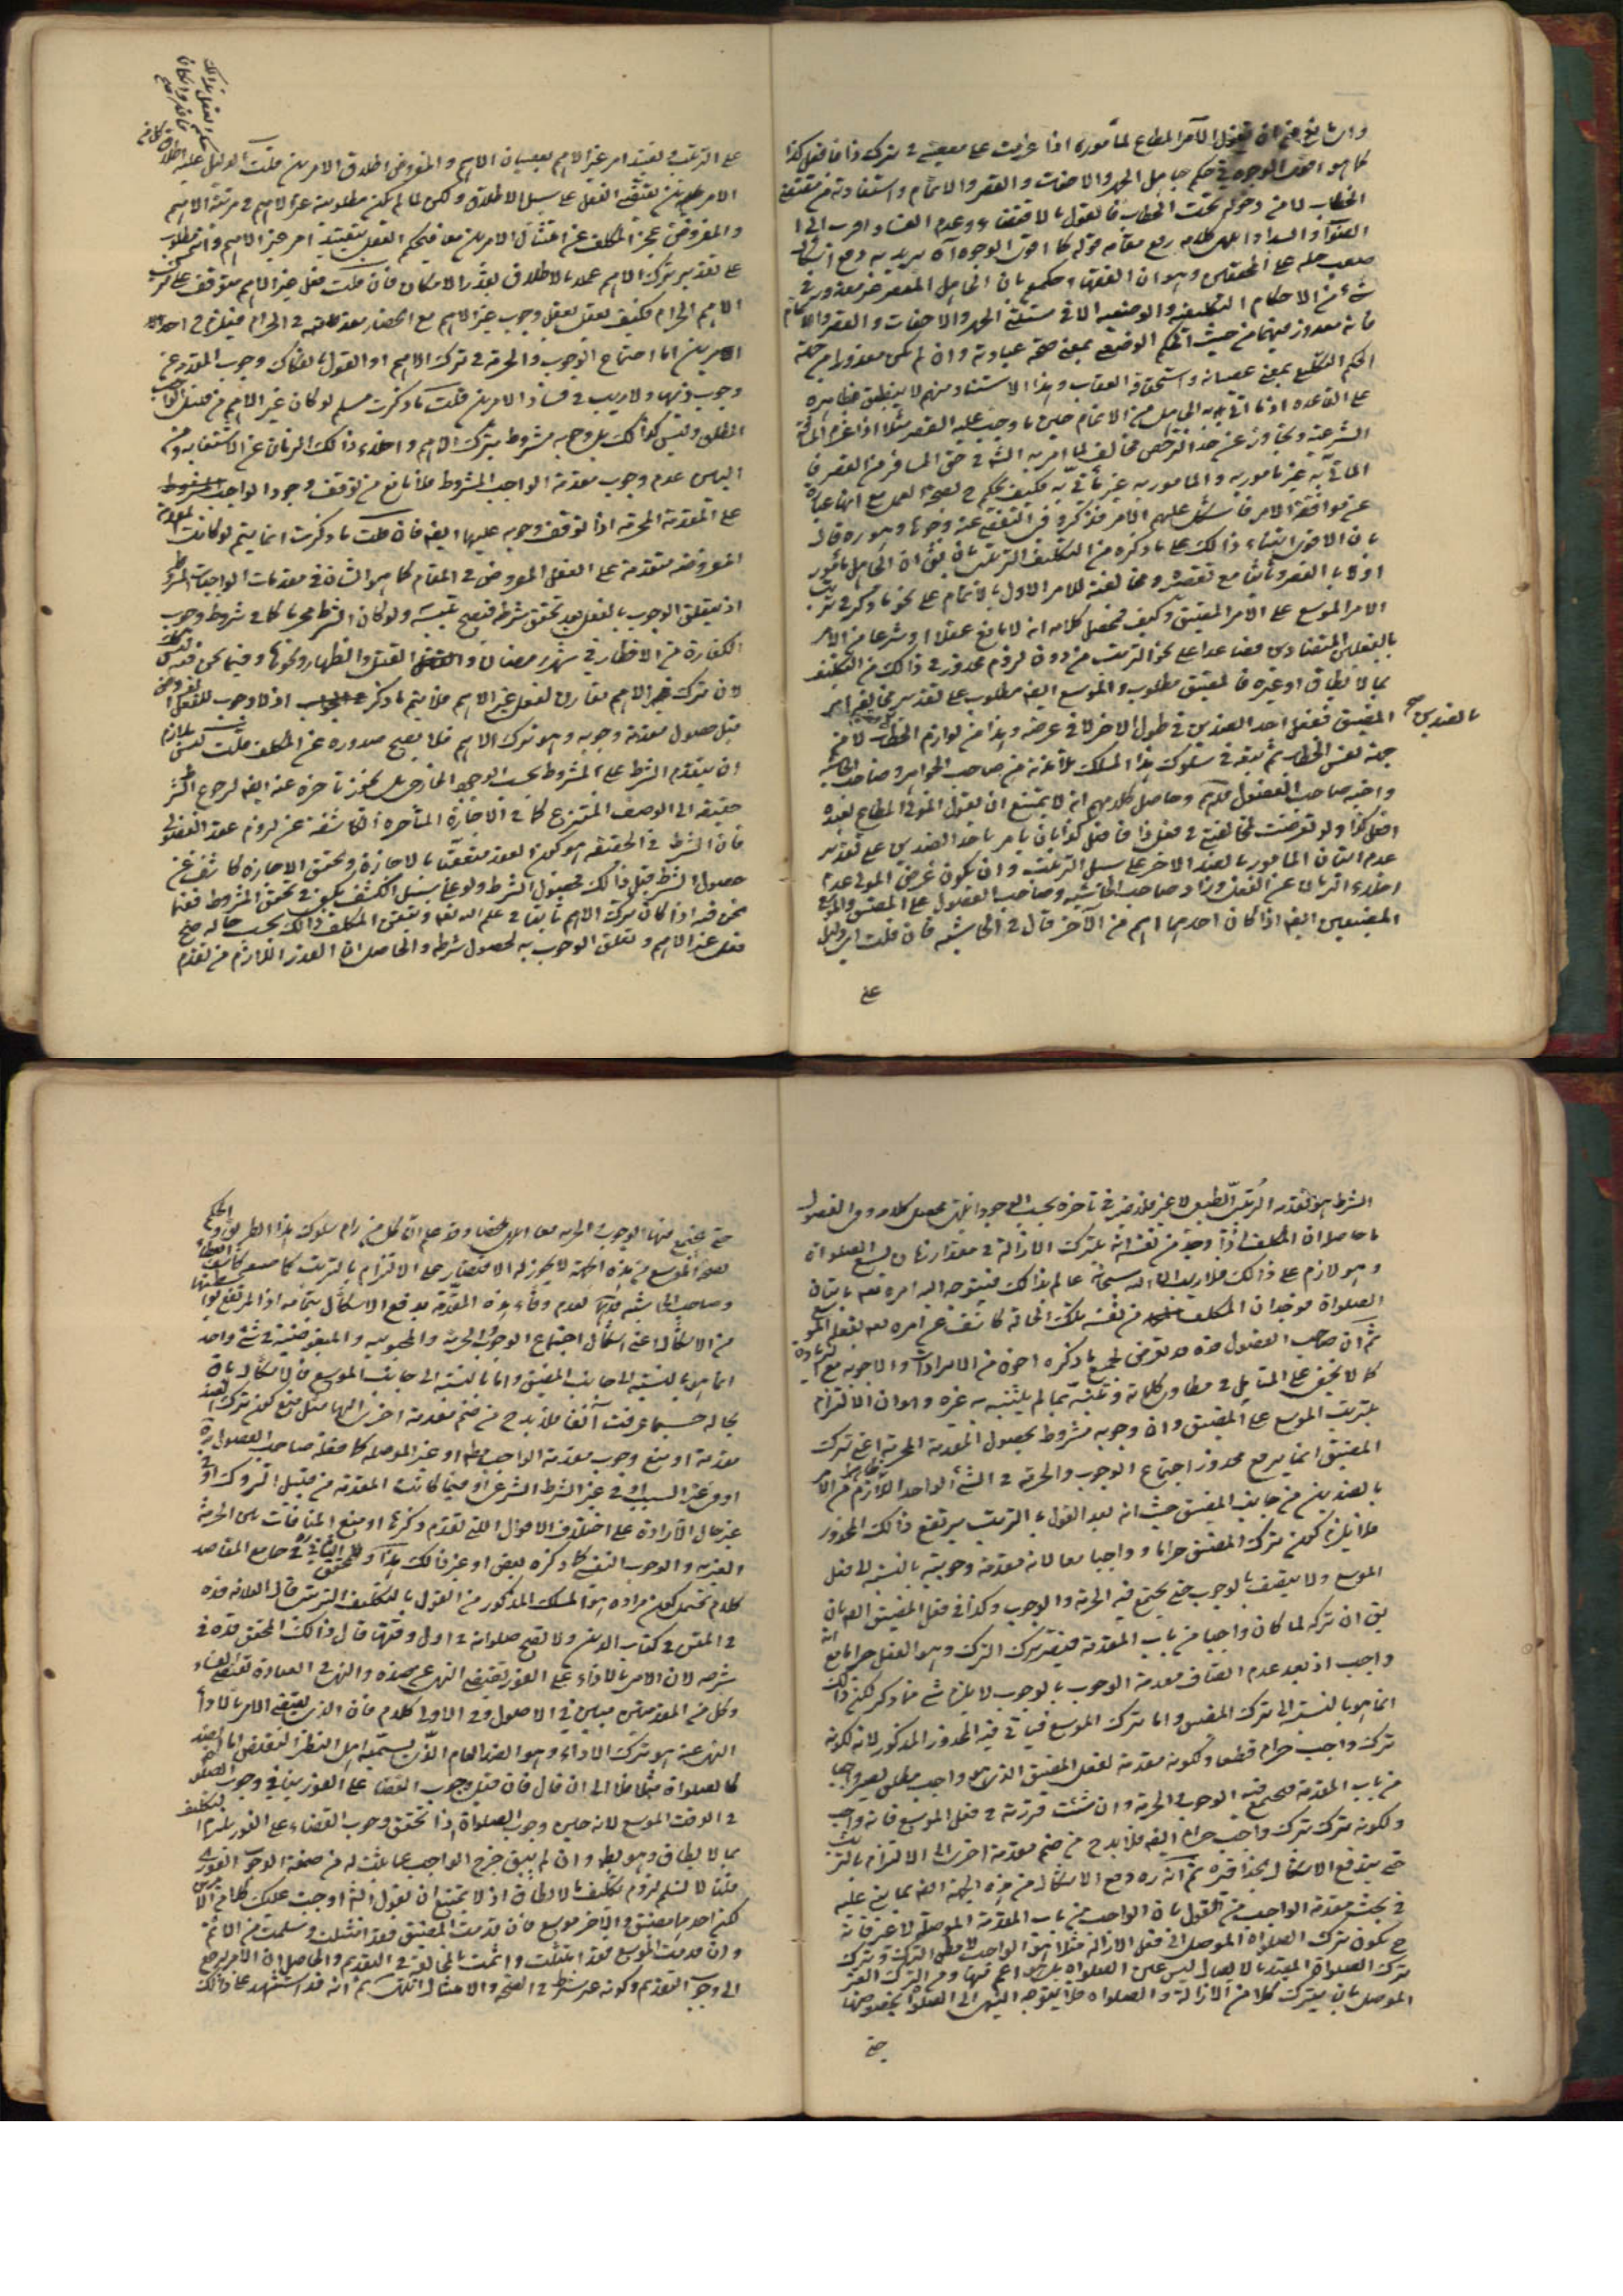 وان شارع من ان يقول الآمر المطاع لمأموره اذا عزمت على معصيتى فى ترك ذا فافعل كذا
كما هو احوط الوجوه فى حكم جاهل الجهر والاخفات والقصر والاتمام واستفادته من مقتضى
الخطاب لا من دخوله تحت الخطاب فالقول بالاقتضاء وعدم الفساد اقرب الى
الصواب والسداد انتهى كلامه رفع مقامه قوله كما احوط الوجوه آه يريد به دفع اشكال
صعب حله على المحققين وهو ان الفقهاء حكموا بان الجاهل المقصر غير معذور فى
شئ من الاحكام التكليفية والوضعية الا فى مسئلتى الجهر والاخفات والقصر والاتمام
فانه معذور فيهما من حيث الحكم الوضعى بمعنى صحة عبادته وان لم يكن معذورا من جهة
الحكم التكليفى بمعنى عصيانه واستحقاقه العقاب وهذا الاستثناء منهم لا ينطبق بظاهره
على القاعدة اذ ما اتى به الجاهل من الاتمام حين ما وجب عليه القصر مثلا اذا عزم المسافة
الشرعية وتجاوز عن حد الترخص مخالف لما امر به الشارع فى حق المسافر من القصر فا
المأتى به غير مامور به والمامور به غير مأتى به فكيف يحكم ح بصحة العمل مع انها عبارة
عن موافقة الامر فاشكل عليهم الامر فذكروا فى التفصى عنه وجوها وهو ره قال
بان الاقوى ابتناء ذلك على ما ذكره من التكليف الترتبى بان يقال ان الجاهل مأمور
اولا بالقصر وثانيا مع تقصيره ومخالفته للامر الاول بالاتمام على نحو ما ذكر فى ترتب
الامر الموسع على الامر المضيق وكيف فمحصل كلامه انه لا مانع عقلا او شرعا من الامر
بالفعلين المتضادين فصاعدا على نحو الترتب من دون لزوم محذور فى ذلك من التكليف
بما لا يطاق او غيره فالمضيق مطلوب والموسع ايضا مطلوب على تقدير مخالفة امر
المضيق ففعل احد الضدين فى طول الاخر لا فى عرضه وهذا من لوازم الخطاب لا من
بالضدين صح
جهة نفس الخطاب ثم تبعه فى سلوك هذا المسلك تلامذته من صاحب الجواهر وصاحب الحاشية
واخيه صاحب الفصول قدهم وحاصل كلامهم انه لا يمتنع ان يقول المولى المطاع لعبده
افعل كذا ولو تعرضت لمخالفتى فى فعل ذا فافعل كذا بان يامر باحد الضدين على تقدير
عدم اتيان المامور بالضد الاخر على سبيل الترتب وان يكون غرض المولى عدم
اخلاء الزمان عن الفعل وزاد صاحب الحاشية وصاحب الفصول على المضيق والموسع
المضيقين ايضا اذا كان احدهما اهم من الآخر قال فى الحاشية فان قلت اى دليل
على
على الترتب وتقييد امر غير الاهم بعصيان الاهم والمفروض اطلاق الامرين قلت الدليل عليه اطلاق كل من
حكم العقل بذلك
فانه وان كان
الامرين يقتضى الفعل على سبيل الاطلاق ولكن لما لم يكن مطلوبية غير الاهم فى مرتبة الاهم
والمفروض عجز المكلف عن امتثال الامرين معا فيحكم العقل بتقييد امر غير الاهم وانه مطلوب
على تقدير ترك الاهم عملا بالاطلاق بقدر الامكان فان قلت فعل غير الاهم متوقف على ترك
الاهم الحرام فكيف يعقل تعلق وجوب غير الاهم مع انحصار مقدمته فى الحرام فيلزم احد
الامرين اما اجتماع الوجوب والحرمة فى ترك الاهم او القول بانفكاك وجوب المقدمة عن
وجوب ذيها ولا ريب فى فساد الامرين قلت ما ذكرت مسلم لو كان غير الاهم من قبيل الواجب
المطلق وليس كذلك بل وجوبه مشروط بترك الاهم واخلاء ذلك الزمان عن الاشتغال به ومن
البين عدم وجوب مقدمة الواجب المشروط فلا مانع من توقف وجود الواجب المشروط
على المقدمة المحرمة اذا توقف وجوبه عليها ايضا فان قلت ما ذكرت انما يتم لو كانت المقدمة
المفروضة متقدمة على الفعل المفروض فى المقام كما هو الشان فى مقدمات الواجبات المشروطة
اذ يتعلق الوجوب بالفعل بعد تحقق شرطه فيصح تلبسه ولو كان الشرط محرما كما فى شروط وجوب
الكفارة من الافطار فى شهر رمضان والقتل والظهار ونحوها وفيما نحن فيه ليس كذلك
لان ترك الاهم مقارن لفعل غير الاهم فلا يتم ما ذكر اذ لا وجوب للفعل المفروض
قبل حصول مقدمة وجوبه وهو ترك الاهم فلا يصح صدوره عن المكلف قلت ليس بلازم
ان يتقدم الشرط على المشروط بحسب الوجود الخارجى بل يجوز تاخره عنه ايضا لرجوع الشرط
حقيقة الى الوصف المنتزع كما فى الاجازة المتاخرة الكاشفة عن لزوم عقد الفضولى
فان الشرط فى الحقيقة هو كون العقد متعقبا بالاجازة وتحقق الاجازة كاشف عن
حصول الشرط قبل ذلك فحصول الشرط ولو على سبيل الكشف يكفى فى تحقق المشروط فقيما
نحن فيه اذا كان ترك الاهم ثابتا فى علم الله تعالى وتيقن المكلف ذلك بحسب حاله صح
فعل غير الاهم وتعلق الوجوب به لحصول شرطه والحاصل ان القدر اللازم من تقدم
الشرط هو تقدمه الرتبى الطبعى لا غير فلا ضير فى تاخره بحسب الوجود انتهى محصل كلامه وفى الفصول
ما حاصله ان المكلف اذا وجد من نفسه انه يترك الازالة فى مقدار زمان يسع الصلواة
وهو لازم على ذلك فلا ريب ان الله سبحانه عالم بذلك فيتوجه اليه امره تعالى باتيان
الصلواة فوجدان المكلف من نفسه تلك الحالة كاشف عن امره تعالى بفعل الموسع
ثم ان صاحب الفصول قده قد تعرض لجميع ما ذكره اخوه من الايرادات والاجوبة مع زيادة
كما لا يخفى على المتامل فى مطاوى كلماته وتنبه بما لم يتنبه به غيره وهو ان الالتزام
بترتب الموسع على المضيق وان وجوبه مشروط بحصول المقدمة المحرمة اعنى ترك
المضيق انما يرفع محذور اجتماع الوجوب والحرمة فى الشئ الواحد اللازم من الامر
بالضدين من جانب المضيق حيث انه بعد القول بالترتب يرتفع ذلك المحذور
فلا يلزم كون ترك المضيق حراما وواجبا معا لانه مقدمة وجوبية بالنسبة الى فعل
الموسع ولا يتصف بالوجوب حتى يجتمع فيه الحرمة والوجوب وكذا فى فعل المضيق ايضا بان
يقال ان تركه لما كان واجبا من باب المقدمة فيصير ترك الترك وهو الفعل حراما مع انه
واجب اذ بعد عدم اتصاف مقدمة الوجوب بالوجوب لا يلزم شئ مما ذكر لكن ذلك
انما هو بالنسبة الى ترك المضيق واما ترك الموسع فياتى فيه المحذور المذكور لانه لكونه
ترك واجب حرام قطعا ولكونه مقدمة لفعل المضيق الذى هو واجب مطلق يصير واجبا
من باب المقدمة فيجتمع فيه الوجوب والحرمة وان شئت قررته فى فعل الموسع فانه واجب
ولكونه ترك ترك واجب حرام ايضا فلا بد ح من ضم مقدمة اخرى الى الالتزام بالترتب
حتى يندفع الاشكال بحذافيره ثم انه ره دفع الاشكال من هذه الجهة ايضا بما بنى عليه
فى بحث مقدمة الواجب من القول بان الواجب من باب المقدمة الموصلة لا غير فانه
ح يكون ترك الصلواة الموصل الى فعل الازالة مثلا هو الواجب لا مطلق الترك وترك
ترك الصلواة المقيد بالايصال ليس عين الصلواة بل هو اعم منها ومن الترك الغير
الموصل بان يترك كلا من الازالة والصلواة فلا يتوجه النهى الى الصلواة بخصوصها
حتى
حتى يجتمع فيها الوجوب والحرمة معا انتهى ملخصا وقد علم ان كل من رام سلوك هذا الطريق والحكم
بصحة الموسع من هذه الجهة لا يجوز له الاقتصار على الالتزام بالترتب كما صنع كاشف الغطاء
وصاحب الحاشية قدهما لعدم وفاء هذه المقدمة بدفع الاشكال بتمامه اذ المرتفع بها
من الاشكال اعنى اشكال اجتماع الوجوب والحرمة والمحبوبية والمبغوضية فى شئ واحد
انما هو بالنسبة الى جانب المضيق واما بالنسبة الى جانب الموسع فالاشكال باق
بحاله حسبما عرفت آنفا فلا بد ح من ضم مقدمة اخرى اليها مثل منع كون ترك الضد
مقدمة او منع وجوب مقدمة الواجب مطلقا او غير الموصلة كما فعله صاحب الفصول ره
او فى غير السبب او فى غير الشرط الشرعى او فيما كانت المقدمة من قبيل التروك او فى
غير حال الارادة على اختلاف الاقوال التى تقدم ذكرها او منع المنافات بين الحرمة
الغيرية والوجوب النفسى كما ذكره بعض او غير ذلك هذا وللمحقق الثانى فى جامع المقاصد
كلام يحتمل كون مراده هو المسلك المذكور من القول بالتكليف الترتبى قال العلامة قده
فى المتن فى كتاب الدين ولا تصح صلواته فى اول وقتها قال ذلك المحقق قده فى
شرحه لان الامر بالاداء على الفور يقتضى النهى عن ضده والنهى فى العبادة يقتضى الفساد
وكل من المقدمتين مبين فى الاصول وفى الاولى كلام فان الذى يقتضى الامر بالاداء
النهى عنه هو ترك الاداء وهو الضد العام الذى يسميه اهل النظر النقيض اما الضد
كالصلواة مثلا فلا الى ان قال فان قيل وجوب القضاء على الفور ينافى وجوب الصلواة
فى الوقت الموسع لانه حين وجوب الصلواة اذا تحقق وجوب القضاء على الفور يلزم التكليف
بما لا يطاق وهو باطل وان لم يبق خرج الواجب عما يثبت له من صفة الوجوب الفورى
قلنا لا نسلم لزوم تكليف ما لا يطاق اذ لا يمتنع ان يقول الشارع اوجبت عليك كلا من الامرين
لكن احدهما مضيق والاخر موسع فان قدمت المضيق فقد امتثلت وسلمت من الاثم
وان قدمت الموسع فقد امتثلت واثمت بالمخالفة فى التقديم والحاصل ان الامر يرجع
الى وجوب التقديم وكونه غير شرط فى الصحة والامتثال انتهى ثم انه قد استشهد على ذلك